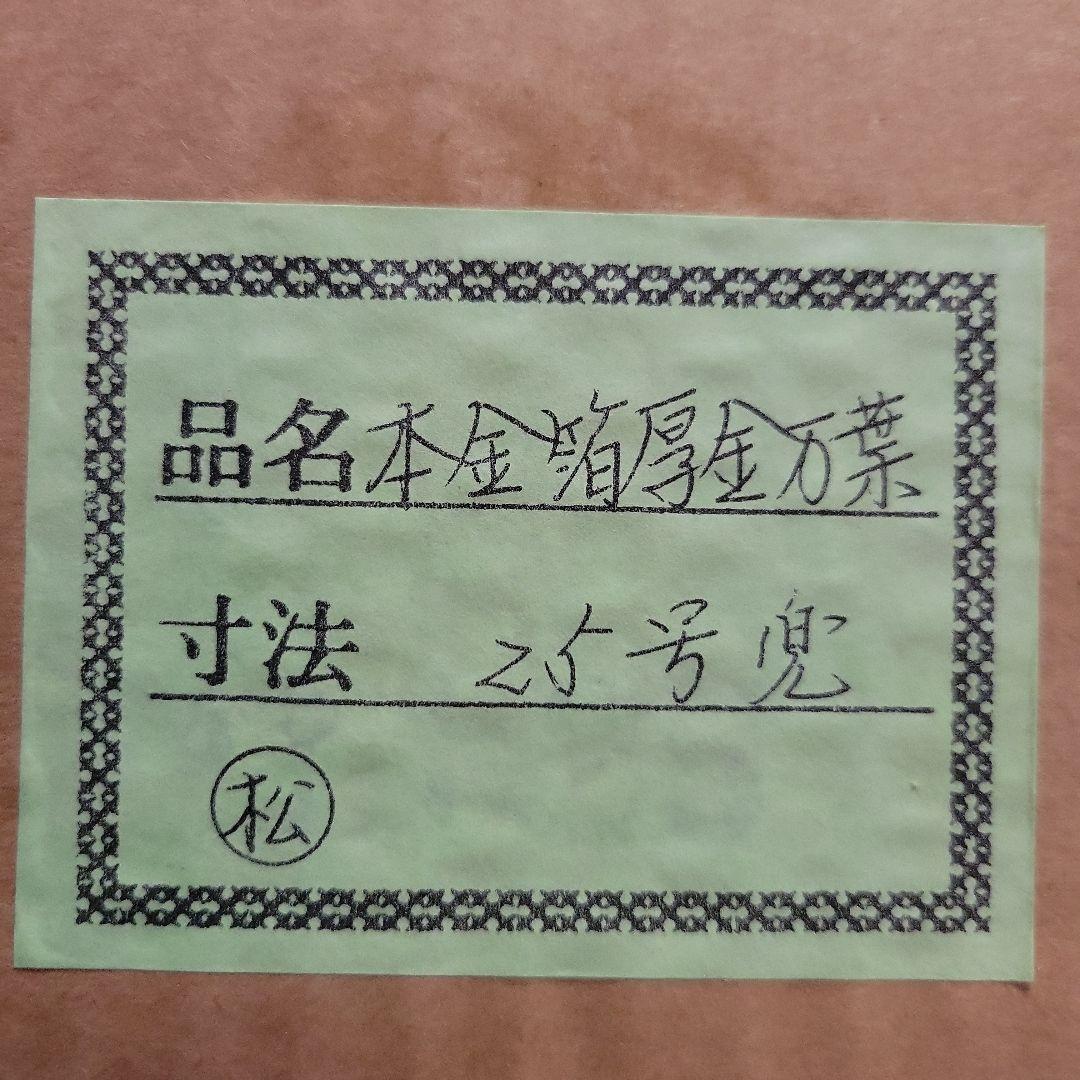 品名 本金箔厚金万葉
寸法 25号 兜
松